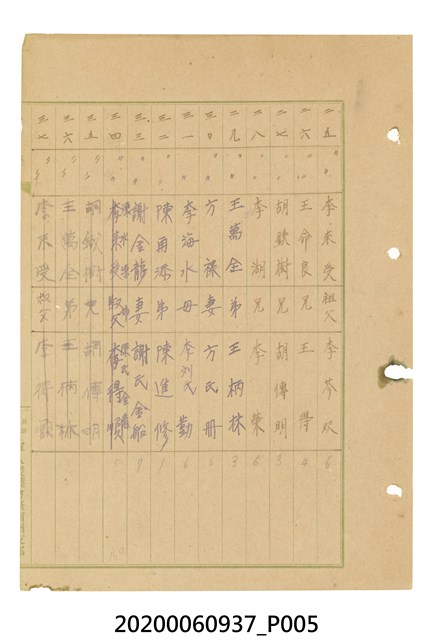 二五 〃〃 李來受 祖父 李芩欢 6
二六 〃〃 王命良 兄 王得 4
二七 〃〃 胡欽樹 兄 胡傳明 3
二八 〃〃 李湖 兄 李榮 6
二九 〃〃 王萬全 弟 王柄林 3
三0 〃〃 方祿 妻 方氏冊 6
三一 〃〃 李海水 母 李刘氏勤 6
三二 〃〃 陳甬添 弟 陳進修 1
三三 〃〃 謝金龍 妻 謝氏金船 7
三四 〃〃 李來受 叔父 李得順
三五 〃〃 胡欽樹 兄 胡傳明
三六 〃〃 王萬全 弟 王柄林
三七 〃〃 李來受 叔父 李得順
20200060937_P005